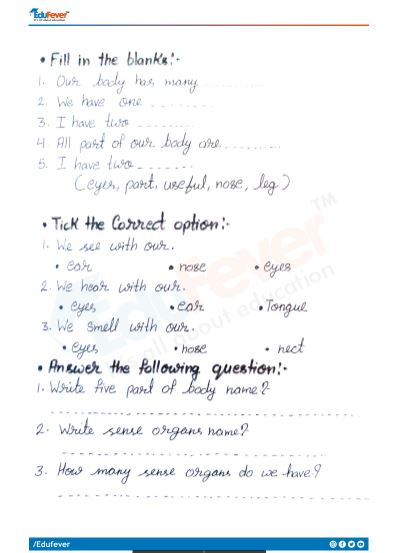 EduFever
• Fill in the blanks:-
1. Our body has many ..........
2. We have one ..........
3. I have two ..........
4. All part of our body are ..........
5. I have two ..........
(eyes, part, useful, nose, leg)
• Tick the Correct option:-
1. We see with our.
• ear • nose • eyes
2. We hear with our.
• eyes • ear • Tongue
3. We smell with our.
• eyes • nose • nect
• Answer the following question:-
1. Write five part of body name?
2. Write sense organs name?
3. How many sense organs do we have?
EduFever TM
all about education
/Edufever